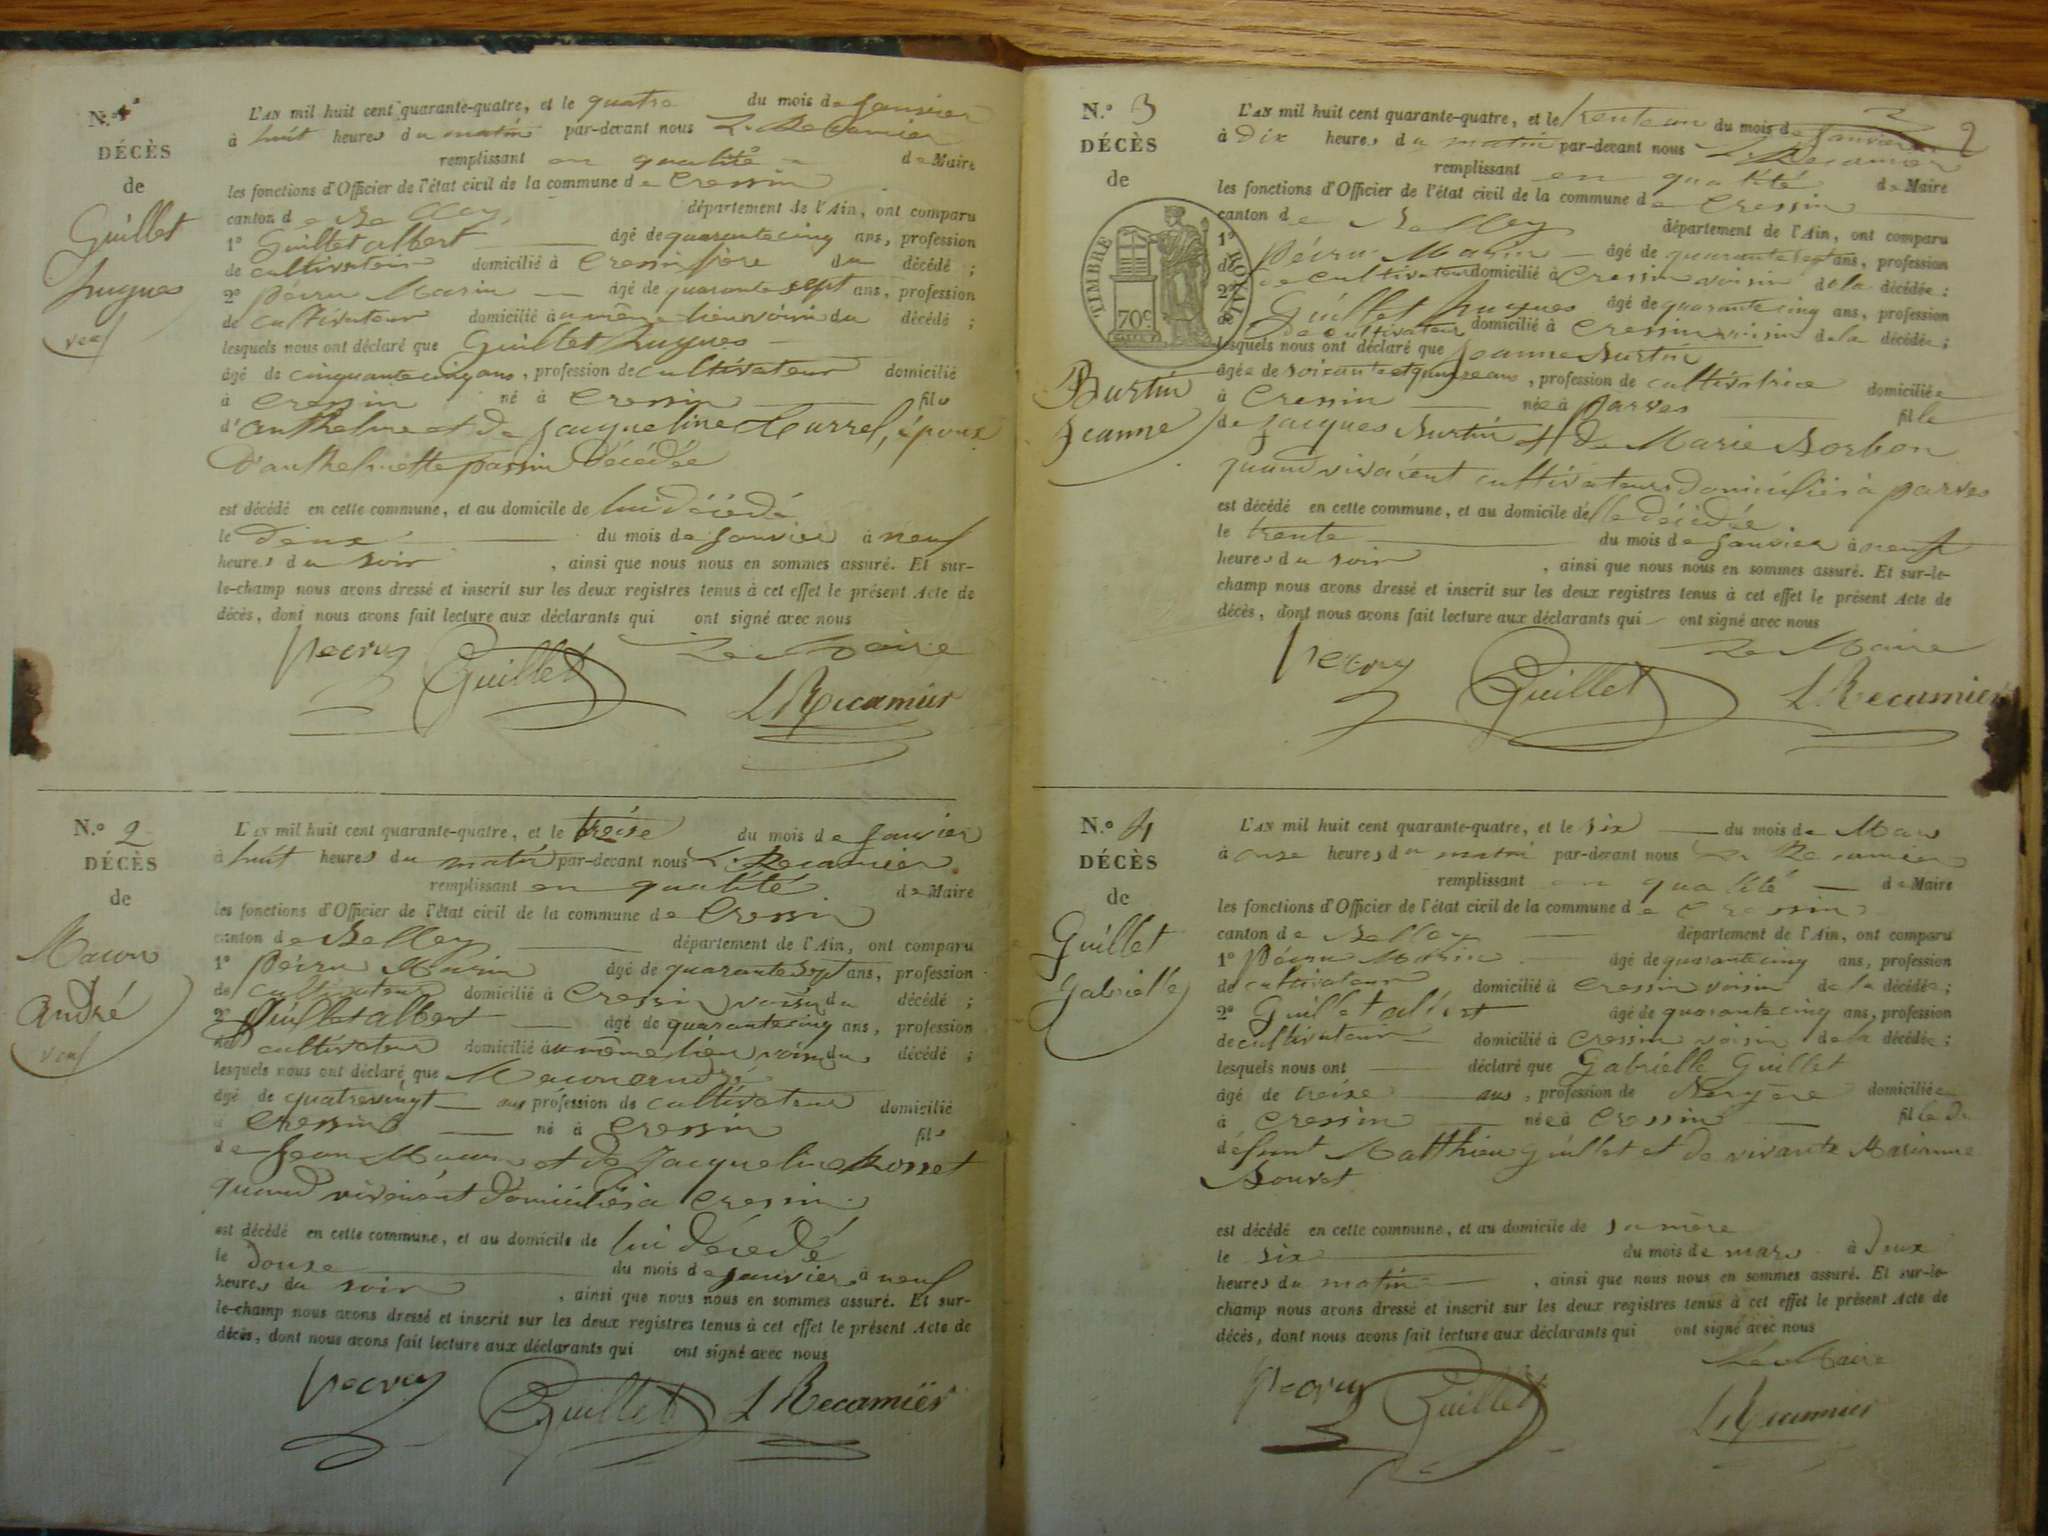 N.º 1
DÉCÈS
de
Guillet
hugues
veuf
L'AN mil huit cent quarante-quatre, et le quatre du mois de Janvier
à huit heures du matin par-devant nous L. Recamier
remplissant en qualité de Maire
les fonctions d'Officier de l'état civil de la commune de Cressin
canton de Belley département de l'Ain, ont comparu
1º Guillet albert âgé de quarante cinq ans, profession
de cultivateur domicilié à Cressin frère du décédé ;
2º Péiru Marin âgé de quarante sept ans, profession
de cultivateur domicilié au même lieu voisin du décédé ;
lesquels nous ont déclaré que Guillet hugues
âgé de cinquante cinq ans, profession de cultivateur domicilié
à Cressin né à Cressin fils
d'anthelme et de jacqueline époux
D'anthelmette passin Décédée
est décédé en cette commune, et au domicile de lui décédé
le Deux du mois de Janvier à neuf
heures du soir, ainsi que nous nous en sommes assuré. Et sur-
le-champ nous avons dressé et inscrit sur les deux registres tenus à cet effet le présent Acte de
décès, dont nous avons fait lecture aux déclarants qui ont signé avec nous
Le Maire
Guillet L Recamier
N.º 2
DÉCÈS
de
Macon
André
veuf
L'AN mil huit cent quarante-quatre, et le treise du mois de Janvier
à huit heures du matin par-devant nous L. Recamier
remplissant en qualité de Maire
les fonctions d'Officier de l'état civil de la commune de Cressin
canton de Belley département de l'Ain, ont comparu
1º Péiru Marin âgé de quarante sept ans, profession
de cultivateur domicilié à Cressin voisin du décédé ;
2º Guillet albert âgé de quarante cinq ans, profession
de cultivateur domicilié au même lieu voisin du décédé ;
lesquels nous ont déclaré que Macon andré
âgé de quatrevingt ans profession de cultivateur domicilié
à Cressin né à Cressin fils
de Jean Macon et de Jacqueline Rosset
quand vivaient Domiciliés à Cressin
est décédé en cette commune, et au domicile de lui décédé
le Douse du mois de Janvier à neuf
heures du soir, ainsi que nous nous en sommes assuré. Et sur-
le-champ nous avons dressé et inscrit sur les deux registres tenus à cet effet le présent Acte de
décès, dont nous avons fait lecture aux déclarants qui ont signé avec nous
Guillet L Recamier
N.º 3
DÉCÈS
de
TIMBRE ROYAL
70c
Burtin
Jeanne
2
L'AN mil huit cent quarante-quatre, et le trente un du mois de Janvier
à Dix heures du matin par-devant nous L. Recamier
remplissant en qualité de Maire
les fonctions d'Officier de l'état civil de la commune de Cressin
canton de Belley département de l'Ain, ont comparu
1º Péiru Marin âgé de quarante sept ans, profession
de cultivateur domicilié à Cressin voisin de la décédée ;
2º Guillet hugues âgé de quarante cinq ans, profession
de cultivateur domicilié à Cressin voisin de la décédée ;
lesquels nous ont déclaré que Jeanne Burtin
âgée de soixante et quinse ans, profession de cultivatrice domiciliée
à Cressin née à Parves fille
de Jacques Burtin et de Marie Borbon
quand vivaient cultivateurs domiciliés à parves
est décédé en cette commune, et au domicile de elle décédée
le trente du mois de Janvier à neuf
heures du soir, ainsi que nous nous en sommes assuré. Et sur-le-
champ nous avons dressé et inscrit sur les deux registres tenus à cet effet le présent Acte de
décès, dont nous avons fait lecture aux déclarants qui ont signé avec nous
Le Maire
Guillet L. Recamier
N.º 4
DÉCÈS
de
Guillet
Gabrielle
L'AN mil huit cent quarante-quatre, et le six du mois de Mars
à onse heures du matin par-devant nous L. Recamier
remplissant en qualité de Maire
les fonctions d'Officier de l'état civil de la commune de Cressin
canton de Belley département de l'Ain, ont comparu
1º Péiru Marin âgé de quarante cinq ans, profession
de cultivateur domicilié à Cressin voisin de la décédée ;
2º Guillet albert âgé de quarante cinq ans, profession
de cultivateur domicilié à Cressin voisin de la décédée ;
lesquels nous ont déclaré que Gabrielle Guillet
âgé de treise ans, profession de Bergère domiciliée
à Cressin née à Cressin fille de
défunt Matthieu Guillet et de vivante Marianne
Bouvet
est décédé en cette commune, et au domicile de sa mère
le six du mois de mars à Deux
heures du matin, ainsi que nous nous en sommes assuré. Et sur-le-
champ nous avons dressé et inscrit sur les deux registres tenus à cet effet le présent Acte de
décès, dont nous avons fait lecture aux déclarants qui ont signé avec nous
Le Maire
Guillet L Recamier